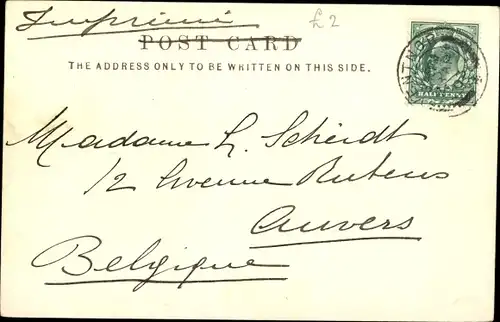 Imprimé
£2
POST CARD
THE ADDRESS ONLY TO BE WRITTEN ON THIS SIDE.
HALFPENNY
Madame L. Scheidt
12 Avenue Rubens
Anvers
Belgique